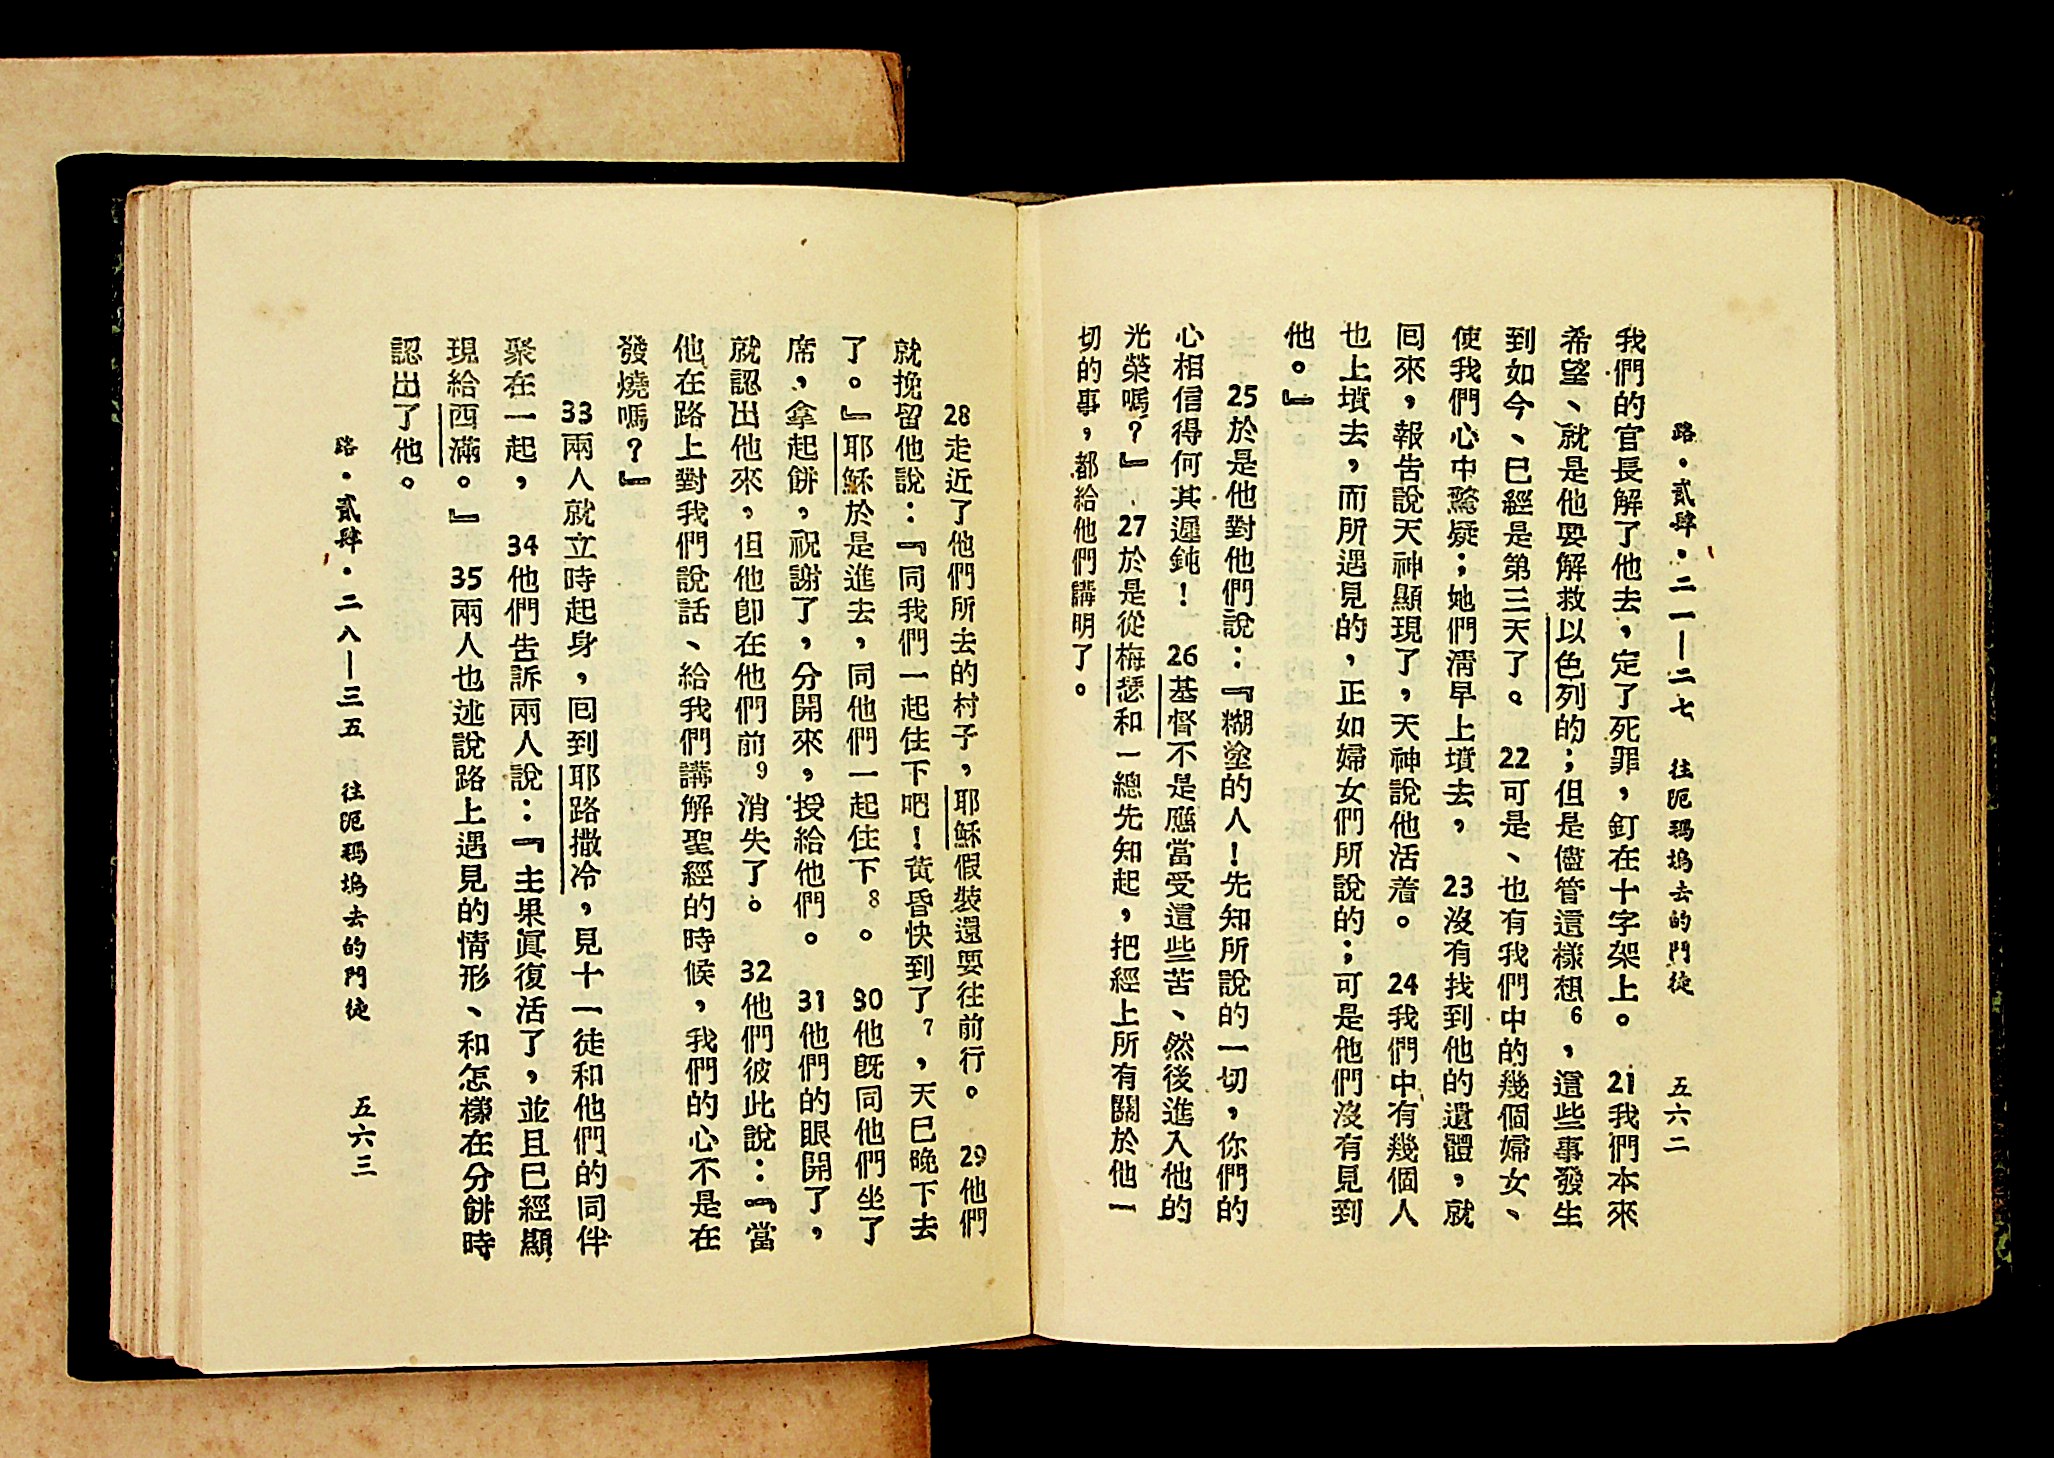 路・貳肆・二一—二七 往阨瑪塢去的門徒 五六二
我們的官長解了他去，定了死罪，釘在十字架上。 21我們本來
希望、就是他要解救以色列的；但是儘管這樣想6，這些事發生
到如今、已經是第三天了。 22可是、也有我們中的幾個婦女、
使我們心中驚疑；她們淸早上墳去， 23沒有找到他的遺體，就
囘來，報告說天神顯現了，天神說他活着。 24我們中有幾個人
也上墳去，而所遇見的，正如婦女們所說的；可是他們沒有見到
他。』
25於是他對他們說：『糊塗的人！先知所說的一切，你們的
心相信得何其遲鈍！ 26基督不是應當受這些苦、然後進入他的
光榮嗎？』 27於是從梅瑟和一總先知起，把經上所有關於他一
切的事，都給他們講明了。
28走近了他們所去的村子，耶穌假裝還要往前行。 29他們
就挽留他說：『同我們一起住下吧！黃昏快到了7，天已晚下去
了。』耶穌於是進去，同他們一起住下8。 30他旣同他們坐了
席，拿起餅，祝謝了，分開來，授給他們。 31他們的眼開了，
就認出他來，但他卽在他們前9消失了。 32他們彼此說：『當
他在路上對我們說話、給我們講解聖經的時候，我們的心不是在
發燒嗎？』
33兩人就立時起身，囘到耶路撒冷，見十一徒和他們的同伴
聚在一起， 34他們告訴兩人說：『主果眞復活了，並且已經顯
現給西滿。』 35兩人也述說路上遇見的情形、和怎樣在分餅時
認出了他。
路・貳肆・二八—三五 往阨瑪塢去的門徒 五六三